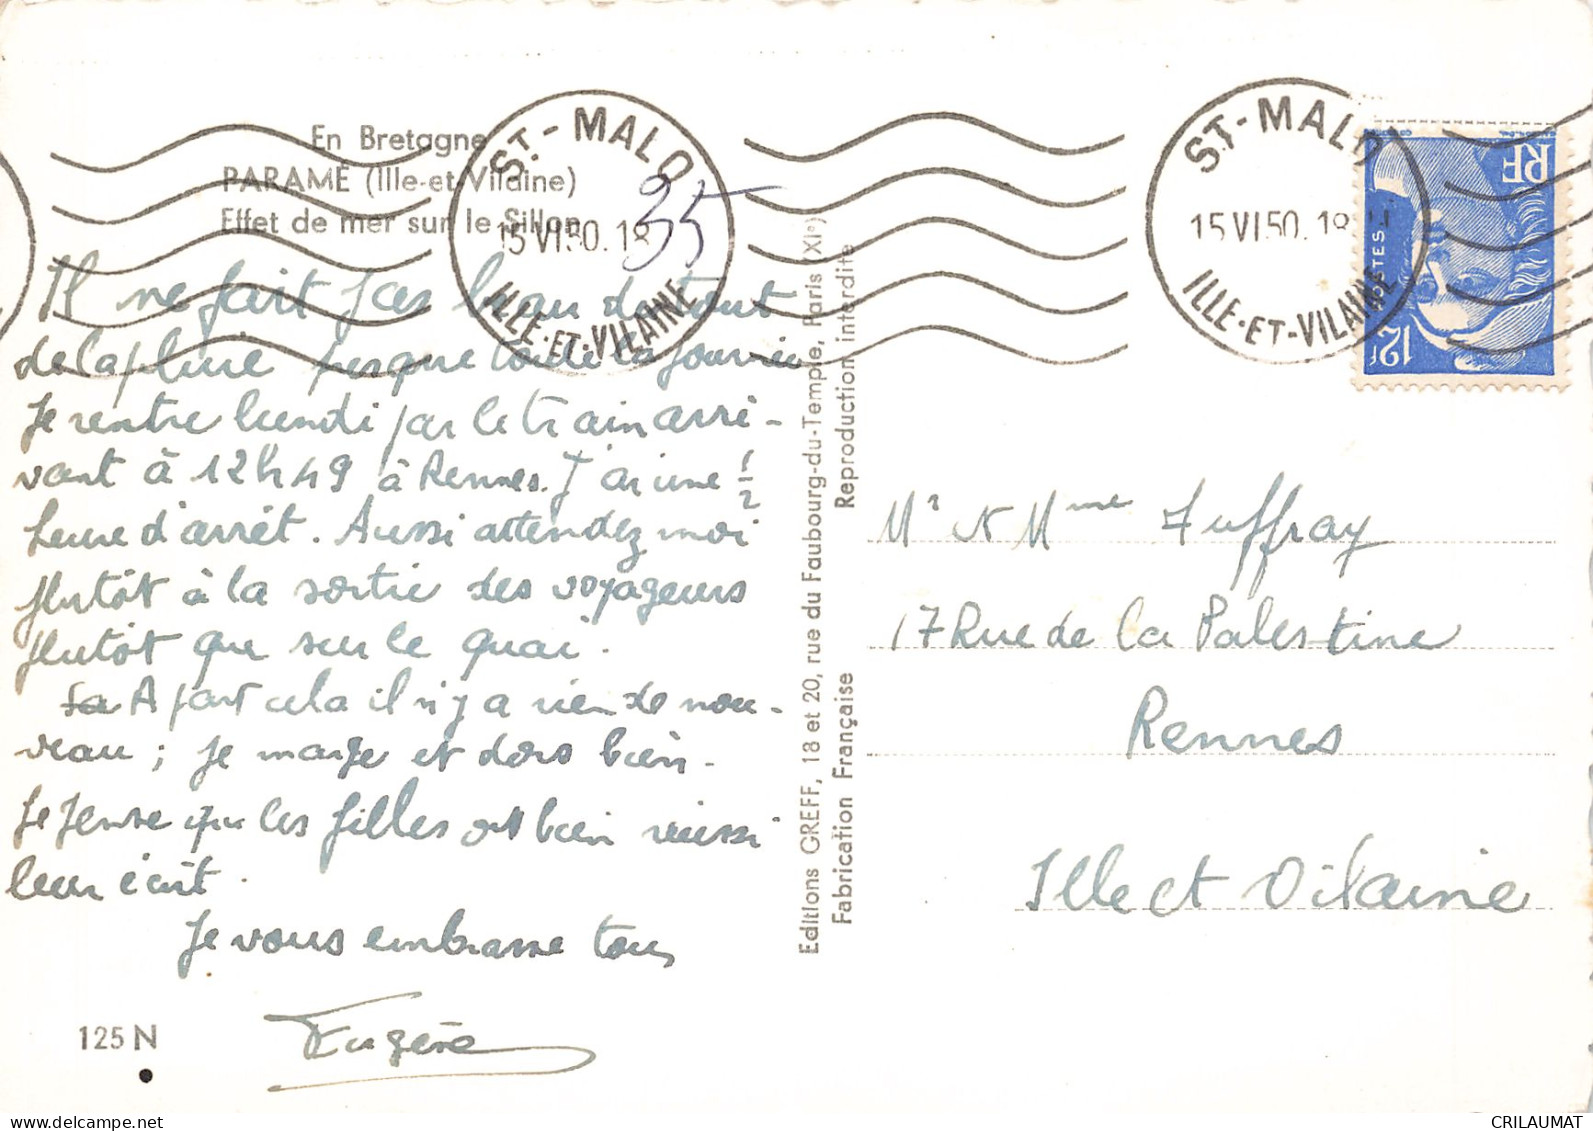 En Bretagne
PARAMÉ (Ille-et-Vilaine)
Effet de mer sur le Sillon
ST.-MALO
15 VI.50. 18
ILLE-ET-VILAINE
35
Il ne fait pas beau du tout
de la pluie presque toute la journée
Je rentre lundi par le train arri-
vant à 12h49 à Rennes. J'ai une 1/2
heure d'arrêt. Aussi attendez moi
plutôt à la sortie des voyageurs
plutôt que sur le quai.
A part cela il n'y a rien de nou-
veau ; je mange et dors bien.
Je pense que les filles ont bien réussi
leur écrit.
Je vous embrasse tous
Eugène
125 N
Editions GREFF, 18 et 20, rue du Faubourg-du-Temple, Paris (XIe)
Fabrication Française
Reproduction interdite
ST-MALO
15 VI.50. 18
ILLE-ET-VILAINE
RF
POSTES
12F
Mr et Mme Juffray
17 Rue de la Palestine
Rennes
Ille et Vilaine
CRILAUMAT